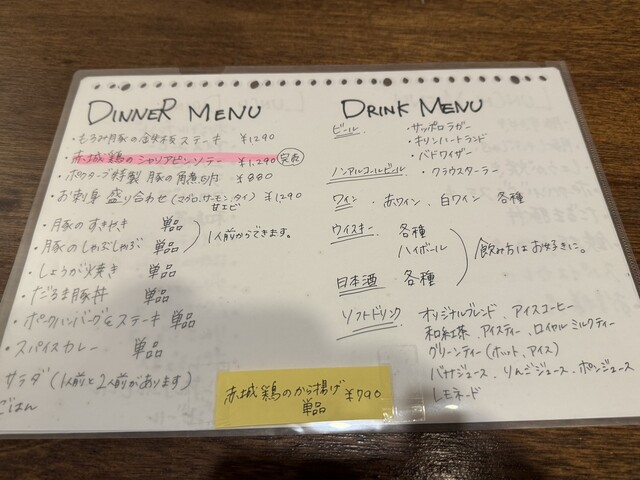 DINNER MENU
・もろみ豚の鉄板ステーキ ¥1290
・赤城鶏のシャリアピンソテー ¥1,290 完売
・ポタジェ特製 豚の角煮 ¥880
・お刺身 盛り合わせ(マグロ、サーモン、タイ) ¥1290
甘エビ
・月豚のすきやき 単品
・月豚のしゃぶしゃぶ 単品
1人前からできます。
・しょうが焼き 単品
・だるま豚丼 単品
・ポークハンバーグ&ステーキ 単品
・スパイスカレー 単品
サラダ(1人前と2人前があります)
ごはん
赤城鶏のから揚げ
単品 ¥790
DRINK MENU
ビール
・サッポロラガー
・キリンハートランド
・バドワイザー
ノンアルコールビール ・クラウスターラー
ワイン ・赤ワイン、白ワイン 各種
ウイスキー 各種
ハイボール
日本酒 各種
飲み方はお好きに。
ソフトドリンク オリジナルブレンド、アイスコーヒー
和紅茶、アイスティー、ロイヤルミルクティー
グリーンティー(ホット、アイス)
バナナジュース、りんごジュース、ポンジュース
レモネード